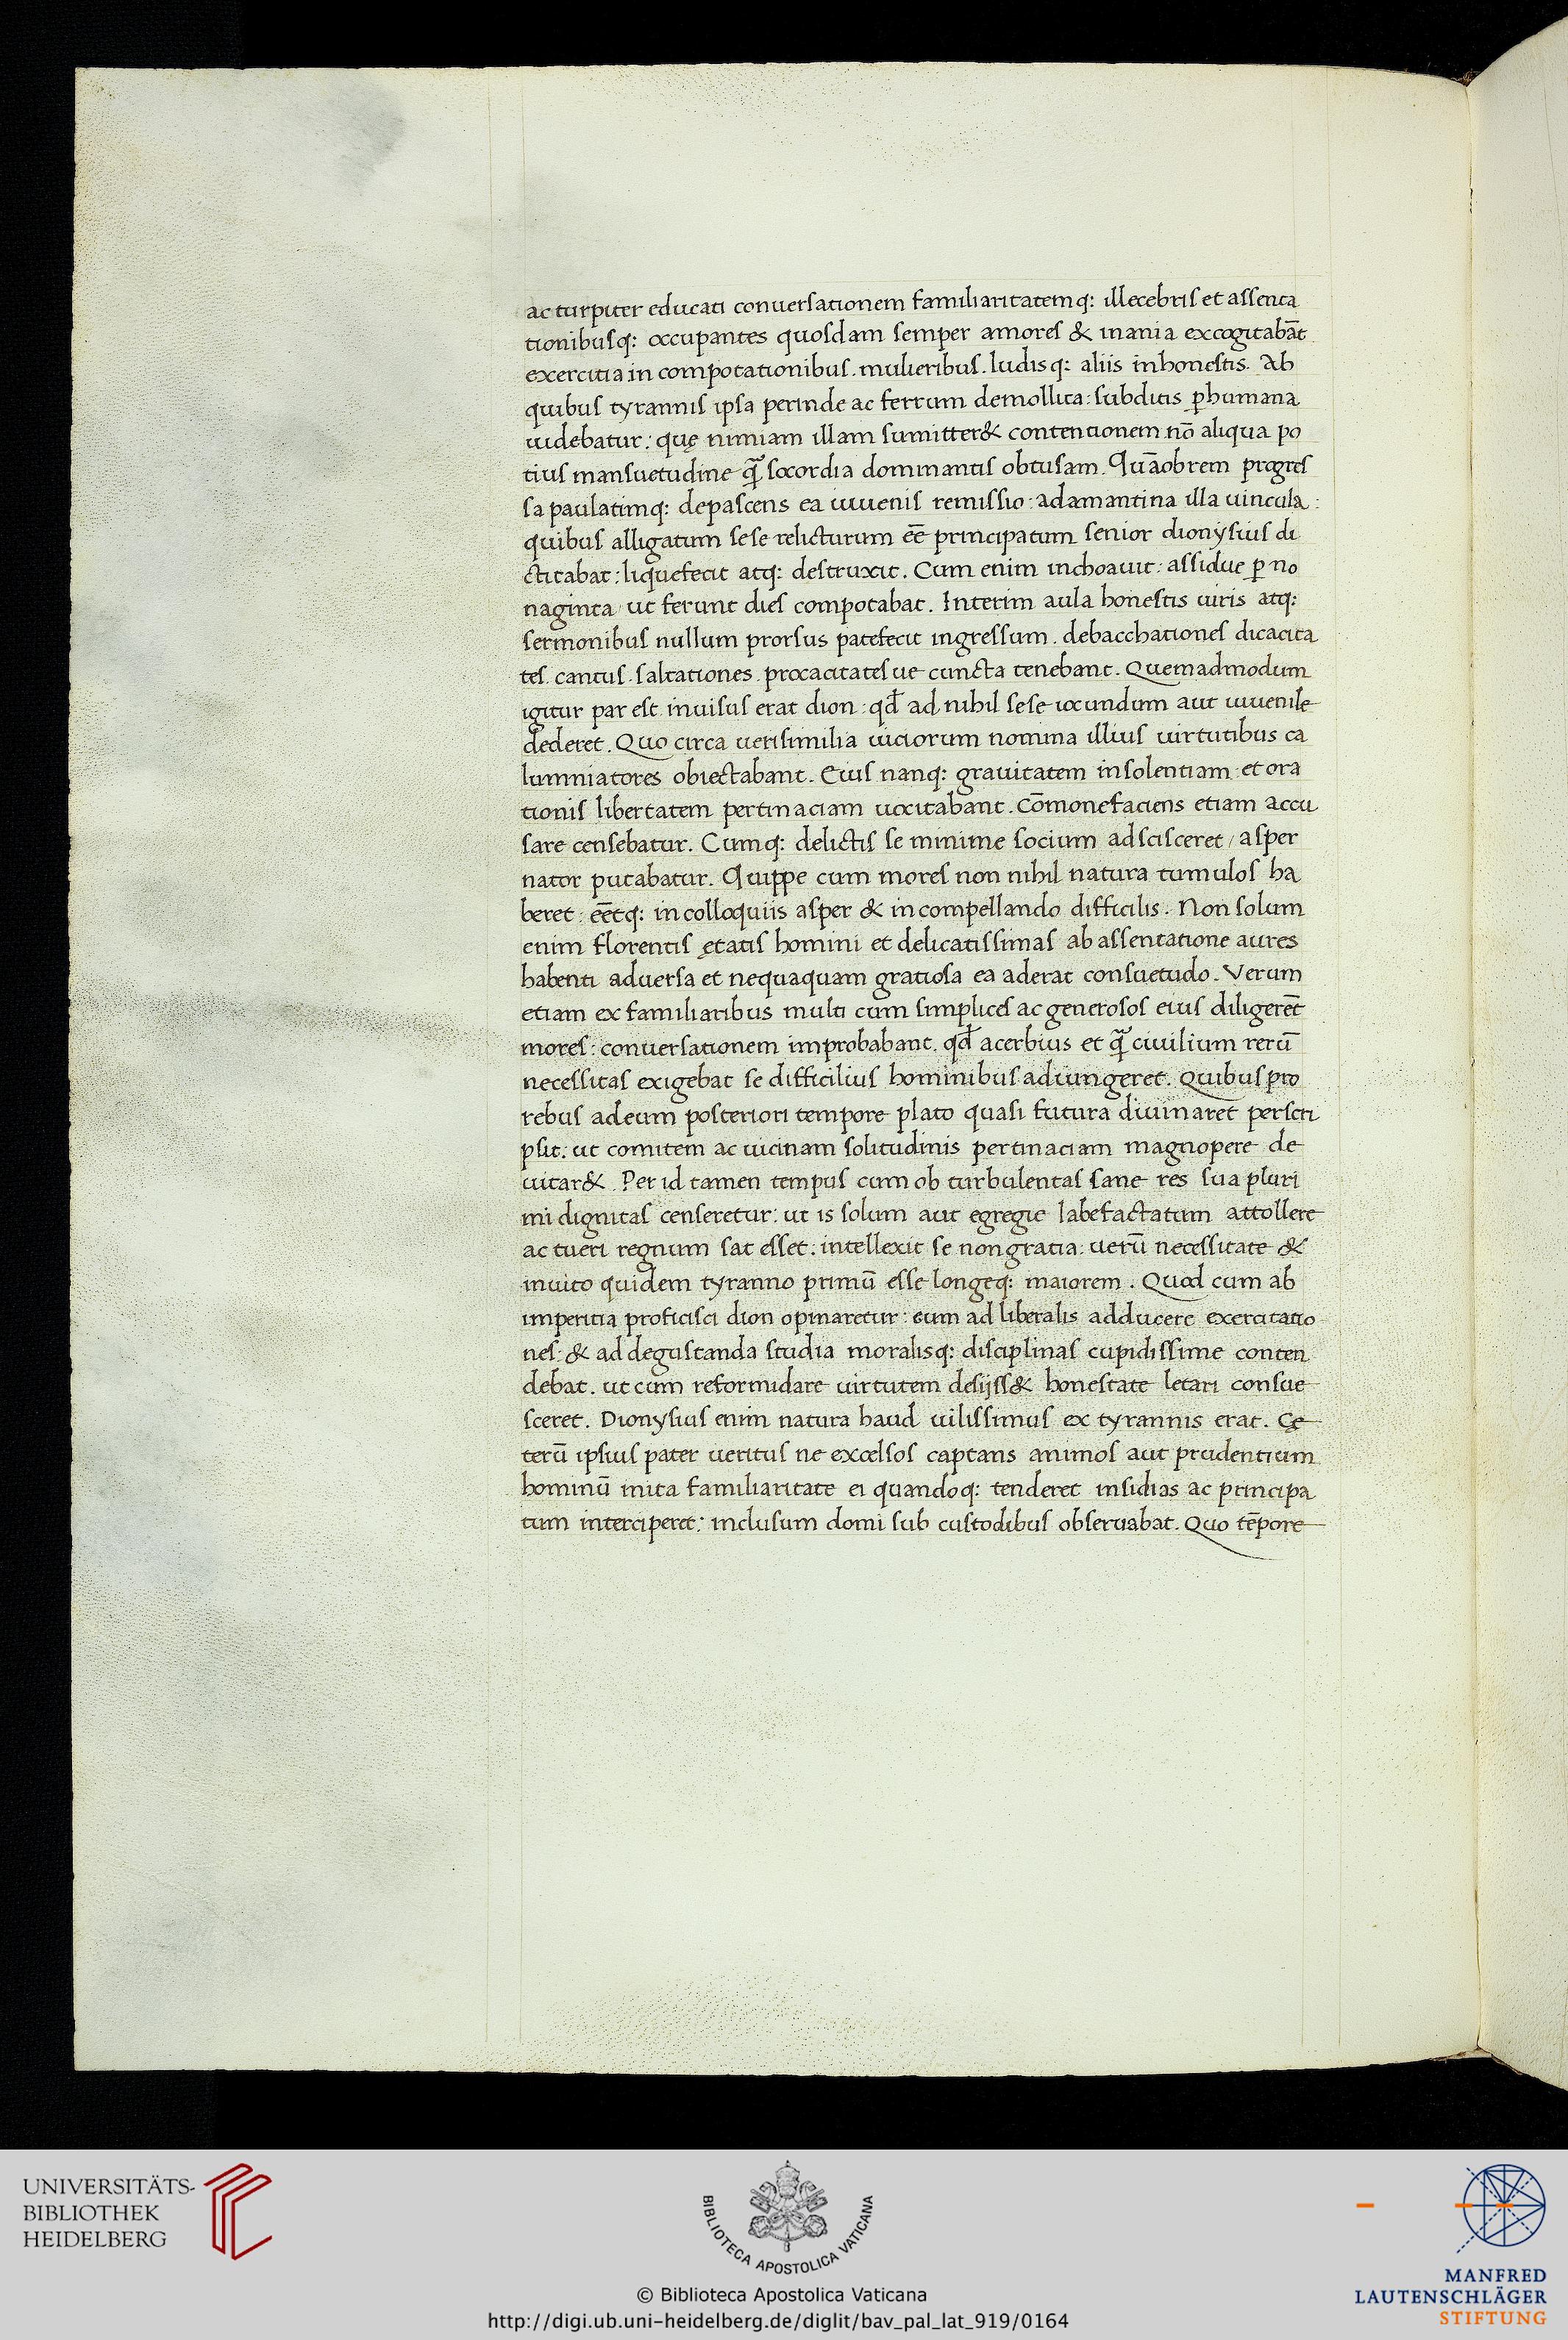 ac turpiter educati conuersationem familiaritatemq: illecebris et assenta
tionibusq: occupantes quosdam semper amores & inania excogitabāt
exercitia in compotationibus. mulieribus. ludisq: aliis inhonestis. Ab
quibus tyrannis ipsa perinde ac ferrum demollita: subditis ꝑhumana
uidebatur: quę nimiam illam sumitter& contentionem nō aliqua po
tius mansuetudine q̃ socordia dominantis obtusam. Quāobrem progres
sa paulatimq: depascens ea iuuenis remissio: adamantina illa uincula:
quibus alligatum sese relicturum eē principatum senior dionysius di
ctitabat: liquefecit atq: destruxit. Cum enim inchoauit: assidue ꝑ no
naginta ut ferunt dies compotabat. Interim aula honestis uiris atq:
sermonibus nullum prorsus patefecit ingressum. debacchationes dicacita
tes. cantus. saltationes. procacitates ue cuncta tenebant. Quemadmodum
igitur par est inuisus erat dion: qđ ad nihil sese iocundum aut iuuenile
dederet. Quo circa uerisimilia uiciorum nomina illius uirtutibus ca
lumniatores obiectabant. Eius nanq: grauitatem insolentiam: et ora
tionis libertatem pertinaciam uocitabant. Cōmonefaciens etiam accu
sare censebatur. Cumq: delictis se minime socium adscisceret/ asper
nator putabatur. Quippe cum mores non nihil natura tumulos ha
beret: eētq: in colloquiis asper & in compellando difficilis. Non solum
enim florentis ętatis homini et delicatissimas ab assentatione aures
habenti aduersa et nequaquam gratiosa ea aderat consuetudo. Verum
etiam ex familiaribus multi cum simplices ac generosos eius diligerēt
mores: conuersationem improbabant. qđ acerbius et q̃ ciuilium rerū
necessitas exigebat se difficilius hominibus adiungeret. Quibus pro
rebus ad eum posteriori tempore plato quasi futura diuinaret perscri
psit: ut comitem ac uicinam solitudinis pertinaciam magnopere de
uitar&. Per id tamen tempus cum ob turbulentas sane res sua pluri
mi dignitas censeretur: ut is solum aut egregie labefactatum attollere
ac tueri regnum sat esset: intellexit se non gratia: uerū necessitate &
inuito quidem tyranno primū esse longeq: maiorem. Quod cum ab
imperitia proficisci dion opinaretur: eum ad liberalis adducere exercitatio
nes: & ad degustanda studia moralisq: disciplinas cupidissime conten
debat. ut cum reformidare uirtutem desijss& honestate letari consue
sceret. Dionysius enim natura haud uilissimus ex tyrannis erat. Cę
terū ipsius pater ueritus ne excelsos captans animos aut prudentium
hominū inita familiaritate ei quandoq: tenderet insidias ac principa
tum interciperet: inclusum domi sub custodibus obseruabat. Quo tēpore
UNIVERSITÄTS-
BIBLIOTHEK
HEIDELBERG
BIBLIOTECA APOSTOLICA VATICANA
© Biblioteca Apostolica Vaticana
http://digi.ub.uni-heidelberg.de/diglit/bav_pal_lat_919/0164
MANFRED
LAUTENSCHLÄGER
STIFTUNG